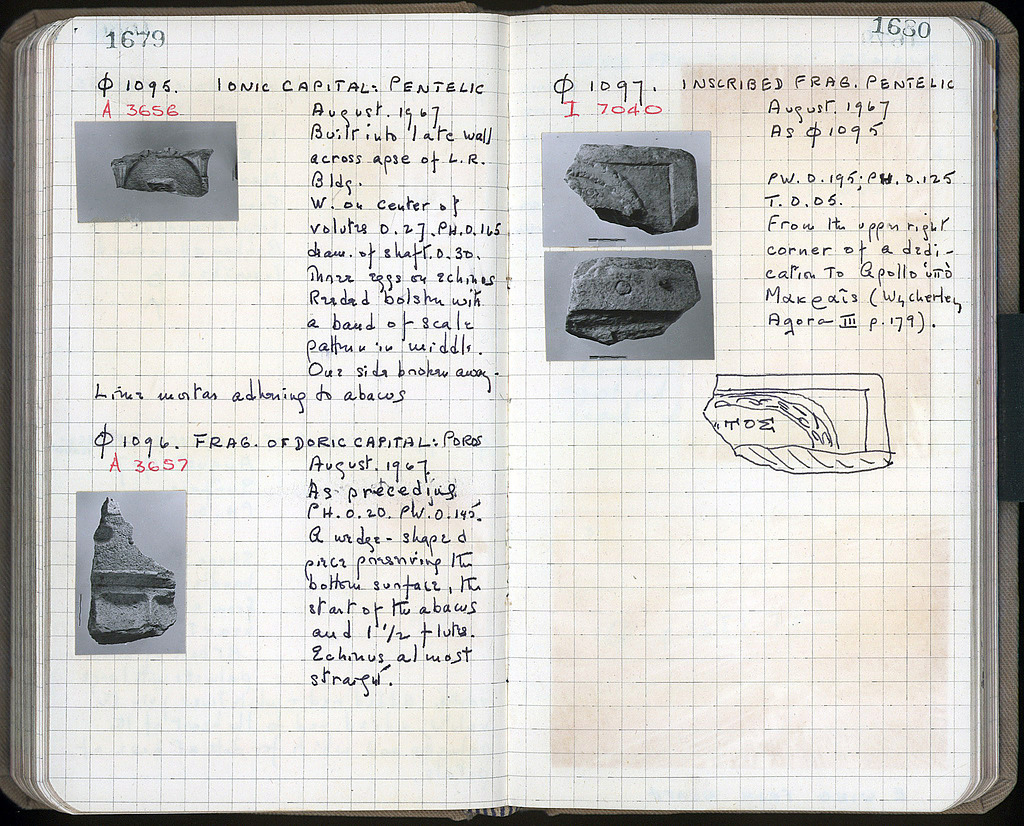 1679
Φ 1095. IONIC CAPITAL: PENTELIC
A 3656
August. 1967
Built into late wall
across apse of L.R.
Bldg.
W. on center of
volutes 0.27. PH.0.165
diam. of shaft. 0.30.
Three eggs on echinos
Reeded bolster with
a band of scale
pattern in middle.
One side broken away.
Lime mortar adhering to abacus
Φ 1096. FRAG. OF DORIC CAPITAL: POROS
A 3657
August. 1967.
As preceding.
PH.0.20. PW.0.195.
A wedge-shaped
piece preserving the
bottom surface, the
start of the abacus
and 1 1/2 flutes.
Echinus almost
straight.
1680
Φ 1097. INSCRIBED FRAG. PENTELIC
I 7040
August. 1967
As Φ 1095
PW. 0.195; PH. 0.125
T. 0.05.
From the upper right
corner of a dedi-
cation to Apollo ὑπὸ
Μακραῖς (Wycherley,
Agora III p. 179).
ΤΟΣ